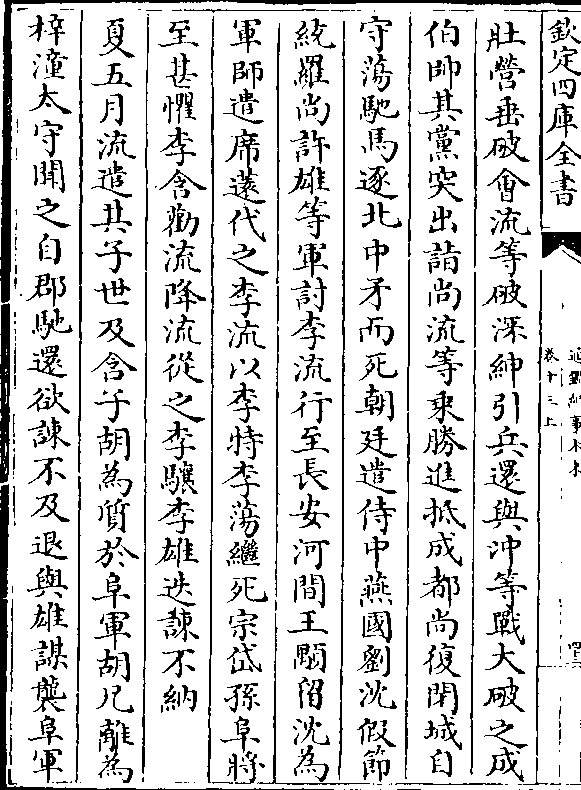 欽定四庫全書
通鑑紀事本末
卷十三上
壯營垂破會流等破深紳引兵還與沖等戰大破之成
伯帥其黨突出詣尚流等乘勝進抵成都尚復閉城自
守蕩馳馬逐北中矛而死朝廷遣侍中燕國劉沈假節
統羅尚許雄等軍討李流行至長安河間王顒留沈為
軍師遣席薳代之李流以李特李蕩繼死宗岱孫阜將
至甚懼李含勸流降流從之李驤李雄迭諫不納
夏五月流遣其子世及含子胡為質於阜軍胡兄離為
梓潼太守聞之自郡馳還欲諫不及退與雄謀襲阜軍